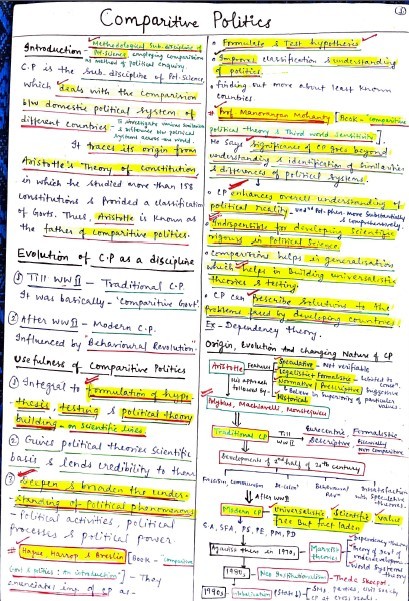 Comparitive Politics
Introduction - Methodological Sub-discipline of
Pol. Science employing comparisons
as method of political enquiry
C.P is the Sub-discipline of Pol-science,
which deals with the comparision
b/w domestic political system of
different countries. To investigate various similarities
& differences b/w political
systems across the world.
It traces its origin from
Aristotle's Theory of constitution
in which he studied more than 158
constitutions & Provided a classification
of Govts. Thus, Aristotle is known as
the father of comparitive politics.
Evolution of C.P as a discipline
① Till WW II - Traditional C.P.
It was basically - 'Comparitive Govt'
② After WW II - Modern C.P.
Influenced by 'Behavioural Revolution'
Usefulness of Comparitive Politics
① Integral to Formulation of hypo
thesis, testing & political theory
building - on scientific lines.
② Gives political theories scientific
basis & lends credibility to them
③ Deepen & broaden the under-
standing of Political phenomenon
- Political activities, political
processes & political power.
# Hague, Harrop & Breslin [Book - "Comparitive
Govt & Politics: an introduction"] - They
enunciate imp of CP as -
• Formulate & Test hypothesis
• Improve classification & understanding
of politics.
• finding out more about least known
countries
# Prof Manoranjan Mohanty [Book - Comparative
political theory & Third world sensitivity]
He says significance of CP goes beyond
understanding & identification of similarities
& differences of political systems.
• CP enhances overall understanding of
political reality - und Pol. phen. more substantially
& comprehensively.
• Indispensible for developing scientific
rigours in Political Science
• comparitions helps in generalisation
which helps in building universalistic
theories & testing.
• CP can Prescribe solutions to the
problems faced by developing countries.
Ex - Dependency theory.
Origin, Evolution And changing Nature of CP
Aristotle Features Speculative - Not verifiable
Legalistic & Formalistic - limited to
Normative / Prescriptive
Historical
His approach
followed by
Polybius, Machiavelli, Montesquieu
Traditional CP Till WW II Eurocentric, Formalistic
Descriptive Essentially
non comparitive
Developments of 2nd half of 20th century
After WW II
Modern CP - Universalistic, Scientific, value
free But fact laden
SA, SFA, PS, PE, PM, PD
Against them in 1970s, Marxist
theories
Dependency theory
World systems
theory
1980s, Neo Institutionalism - Theda Skocpol.
1990s